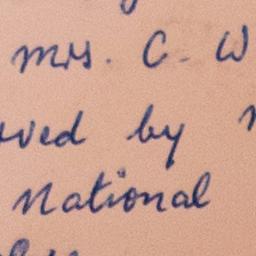 Mrs. C. W
ved by
National